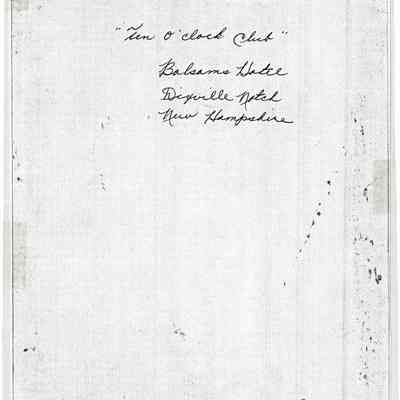 "Ten O'clock Club"
Balsams Hotel
Dixville Notch
New Hampshire